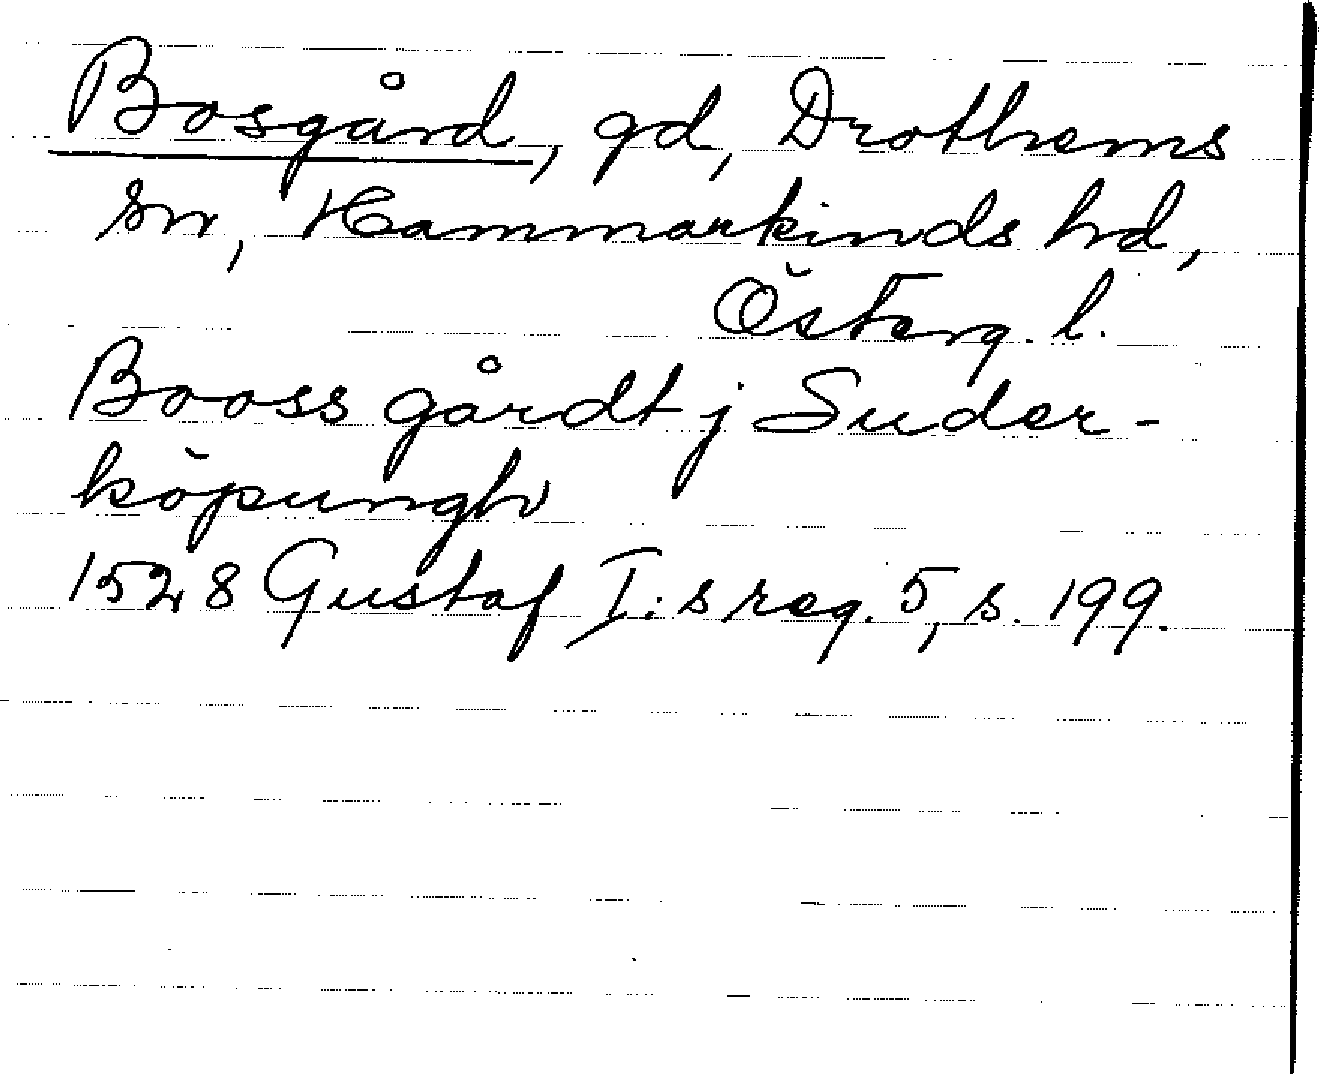 Bosgård, gd, Drothems
sn, Hammarkinds hd,
Österg. l.
Booss gårdt j Suder-
köpungh
1528 Gustaf I:s reg. 5, s. 199.